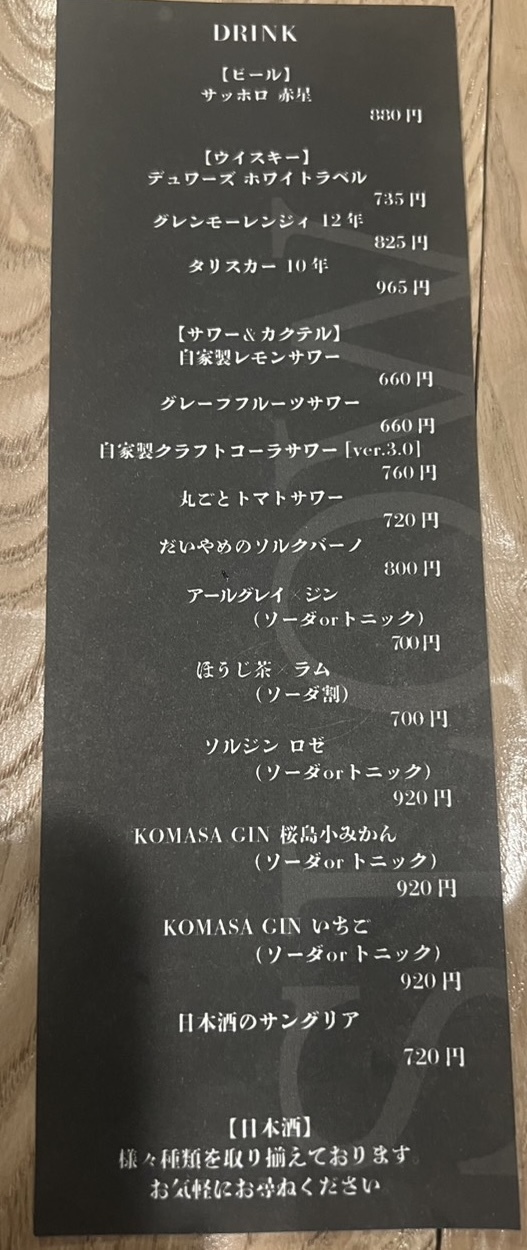 DRINK
【ビール】
サッポロ 赤星
880円
【ウイスキー】
デュワーズ ホワイトラベル
735円
グレンモーレンジィ 12年
825円
タリスカー 10年
965円
【サワー&カクテル】
自家製レモンサワー
660円
グレープフルーツサワー
660円
自家製クラフトコーラサワー [ver.3.0]
760円
丸ごとトマトサワー
720円
だいやめのソルクバーノ
800円
アールグレイ×ジン
(ソーダorトニック)
700円
ほうじ茶×ラム
(ソーダ割)
700円
ソルジン ロゼ
(ソーダorトニック)
920円
KOMASA GIN 桜島小みかん
(ソーダorトニック)
920円
KOMASA GIN いちご
(ソーダorトニック)
920円
日本酒のサングリア
720円
【日本酒】
様々種類を取り揃えております。
お気軽にお尋ねください